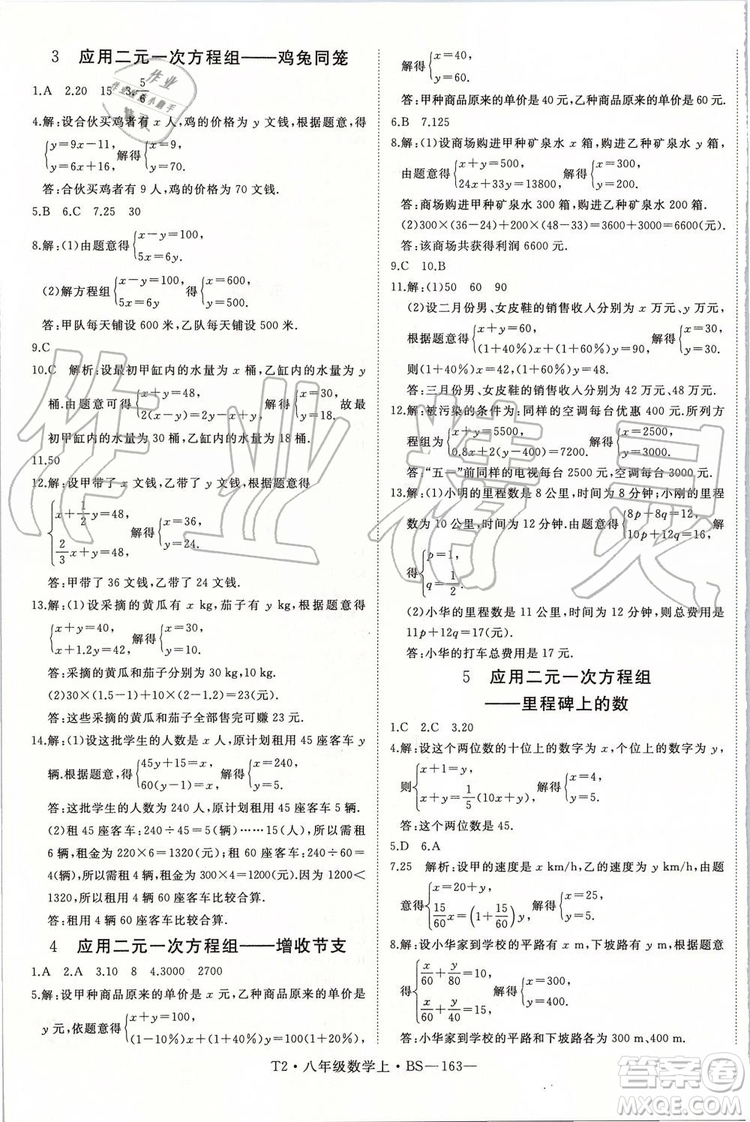 3 应用二元一次方程组——鸡兔同笼
1.A 2.20 15 3.5/6
4.解:设合伙买鸡者有 x 人,鸡的价格为 y 文钱,根据题意,得
{y=9x-11, y=6x+16, 解得{x=9, y=70.
答:合伙买鸡者有 9 人,鸡的价格为 70 文钱.
5.B 6.C 7.25 30
8.解:(1)由题意得{x-y=100, 5x=6y.
(2)解方程组{x-y=100, 5x=6y 得{x=600, y=500.
答:甲队每天铺设 600 米,乙队每天铺设 500 米.
9.C
10.C 解析:设最初甲缸内的水量为 x 桶,乙缸内的水量为 y
桶.由题意得{x+y=48, 2(x-y)=2y-x+y, 解得{x=30, y=18. 故最
初甲缸内的水量为 30 桶,乙缸内的水量为 18 桶.
11.50
12.解:设甲带了 x 文钱,乙带了 y 文钱,根据题意,得
{x+1/2y=48, 2/3x+y=48, 解得{x=36, y=24.
答:甲带了 36 文钱,乙带了 24 文钱.
13.解:(1)设采摘的黄瓜有 x kg,茄子有 y kg,根据题意,得
{x+y=40, x+1.2y=42, 解得{x=30, y=10.
答:采摘的黄瓜和茄子分别有 30 kg,10 kg.
(2)30×(1.5-1)+10×(2-1.2)=23(元).
答:这些采摘的黄瓜和茄子全部售出可赚 23 元.
14.解:(1)设这批学生的人数是 x 人,原计划租用 y 辆客车.
{45y+15=x, 60(y-1)=x, 解得{x=240, y=5.
答:这批学生的人数为 240 人,原计划租用 45 座客车 5 辆.
(2)租 45 座客车:240÷45=5(辆)……15(人),所以需租
6 辆,租金为 220×6=1320(元);租 60 座客车:240÷60=
4(辆),所以需租 4 辆,租金为 300×4=1200(元).1200<
1320,租用 4 辆 60 座客车比较合算.
答:租用 4 辆 60 座客车比较合算.
4 应用二元一次方程组——增收节支
1.A 2.A 3.10 8 4.3000 2700
5.解:设甲种商品原来的单价是 x 元,乙种商品原来的单价是
y 元,依题意得{x+y=100, (1-10%)x+(1+40%)y=100(1+20%),
解得{x=40, y=60.
答:甲种商品原来的单价是 40 元,乙种商品原来的单价是 60 元.
6.B 7.125
8.解:(1)设商场购进甲种矿泉水 x 箱,购进乙种矿泉水 y 箱,
由题意得{x+y=500, 24x+33y=13800, 解得{x=300, y=200.
答:商场购进甲种矿泉水 300 箱,购进乙种矿泉水 200 箱.
(2)300×(36-24)+200×(48-33)=3600+3000=6600(元).
答:该商场共获得利润 6600 元.
9.C 10.B
11.解:(1)50 60 90
(2)设二月份男、女皮鞋的销售收入分别为 x 万元,y 万元,
根据题意,得{x+y=60, (1+40%)x+(1+60%)y=90, 解得{x=30, y=30.
则(1+40%)x=42,(1+60%)y=48.
答:三月份男、女皮鞋的销售收入分别为 42 万元、48 万元.
12.解:被污染的条件为:同样的空调每台优惠 400 元.所列方
程组为{x+y=5500, 0.8x+2(y-400)=7200, 解得{x=2500, y=3000.
答:"五一"前同样的电视每台 2500 元,空调每台 3000 元.
13.解:(1)小明的里程数是 8 公里,时间为 8 分钟;小刚的里程
数为 10 公里,时间为 12 分钟.由题意得{8p+8q=12, 10p+12q=16, 解
得{p=1, q=1/2.
(2)小华的里程数是 11 公里,时间为 12 分钟,则总费用是
11p+12q=17(元).
答:小华的打车总费用是 17 元.
5 应用二元一次方程组
——里程碑上的数
1.C 2.C 3.20
4.解:设这个两位数的十位上的数字为 x,个位上的数字为 y,
则{x=y-1, x+y=1/5(10x+y), 解得{x=4, y=5.
答:这个两位数是 45.
5.D 6.A
7.25 解析:设甲的速度是 x km/h,乙的速度为 y km/h,由题
意得{x=20+y, 15/60x=(15/60+1)y, 解得{x=25, y=5.
8.解:设小华家到学校的平路有 x m,下坡路有 y m,根据题意
得{x/60+y/80=10, x/60+y/40=15, 解得{x=300, y=400.
答:小华家到学校的平路和下坡路各为 300 m,400 m.
T2·八年级数学上·BS—163—
作业精灵
答案圈